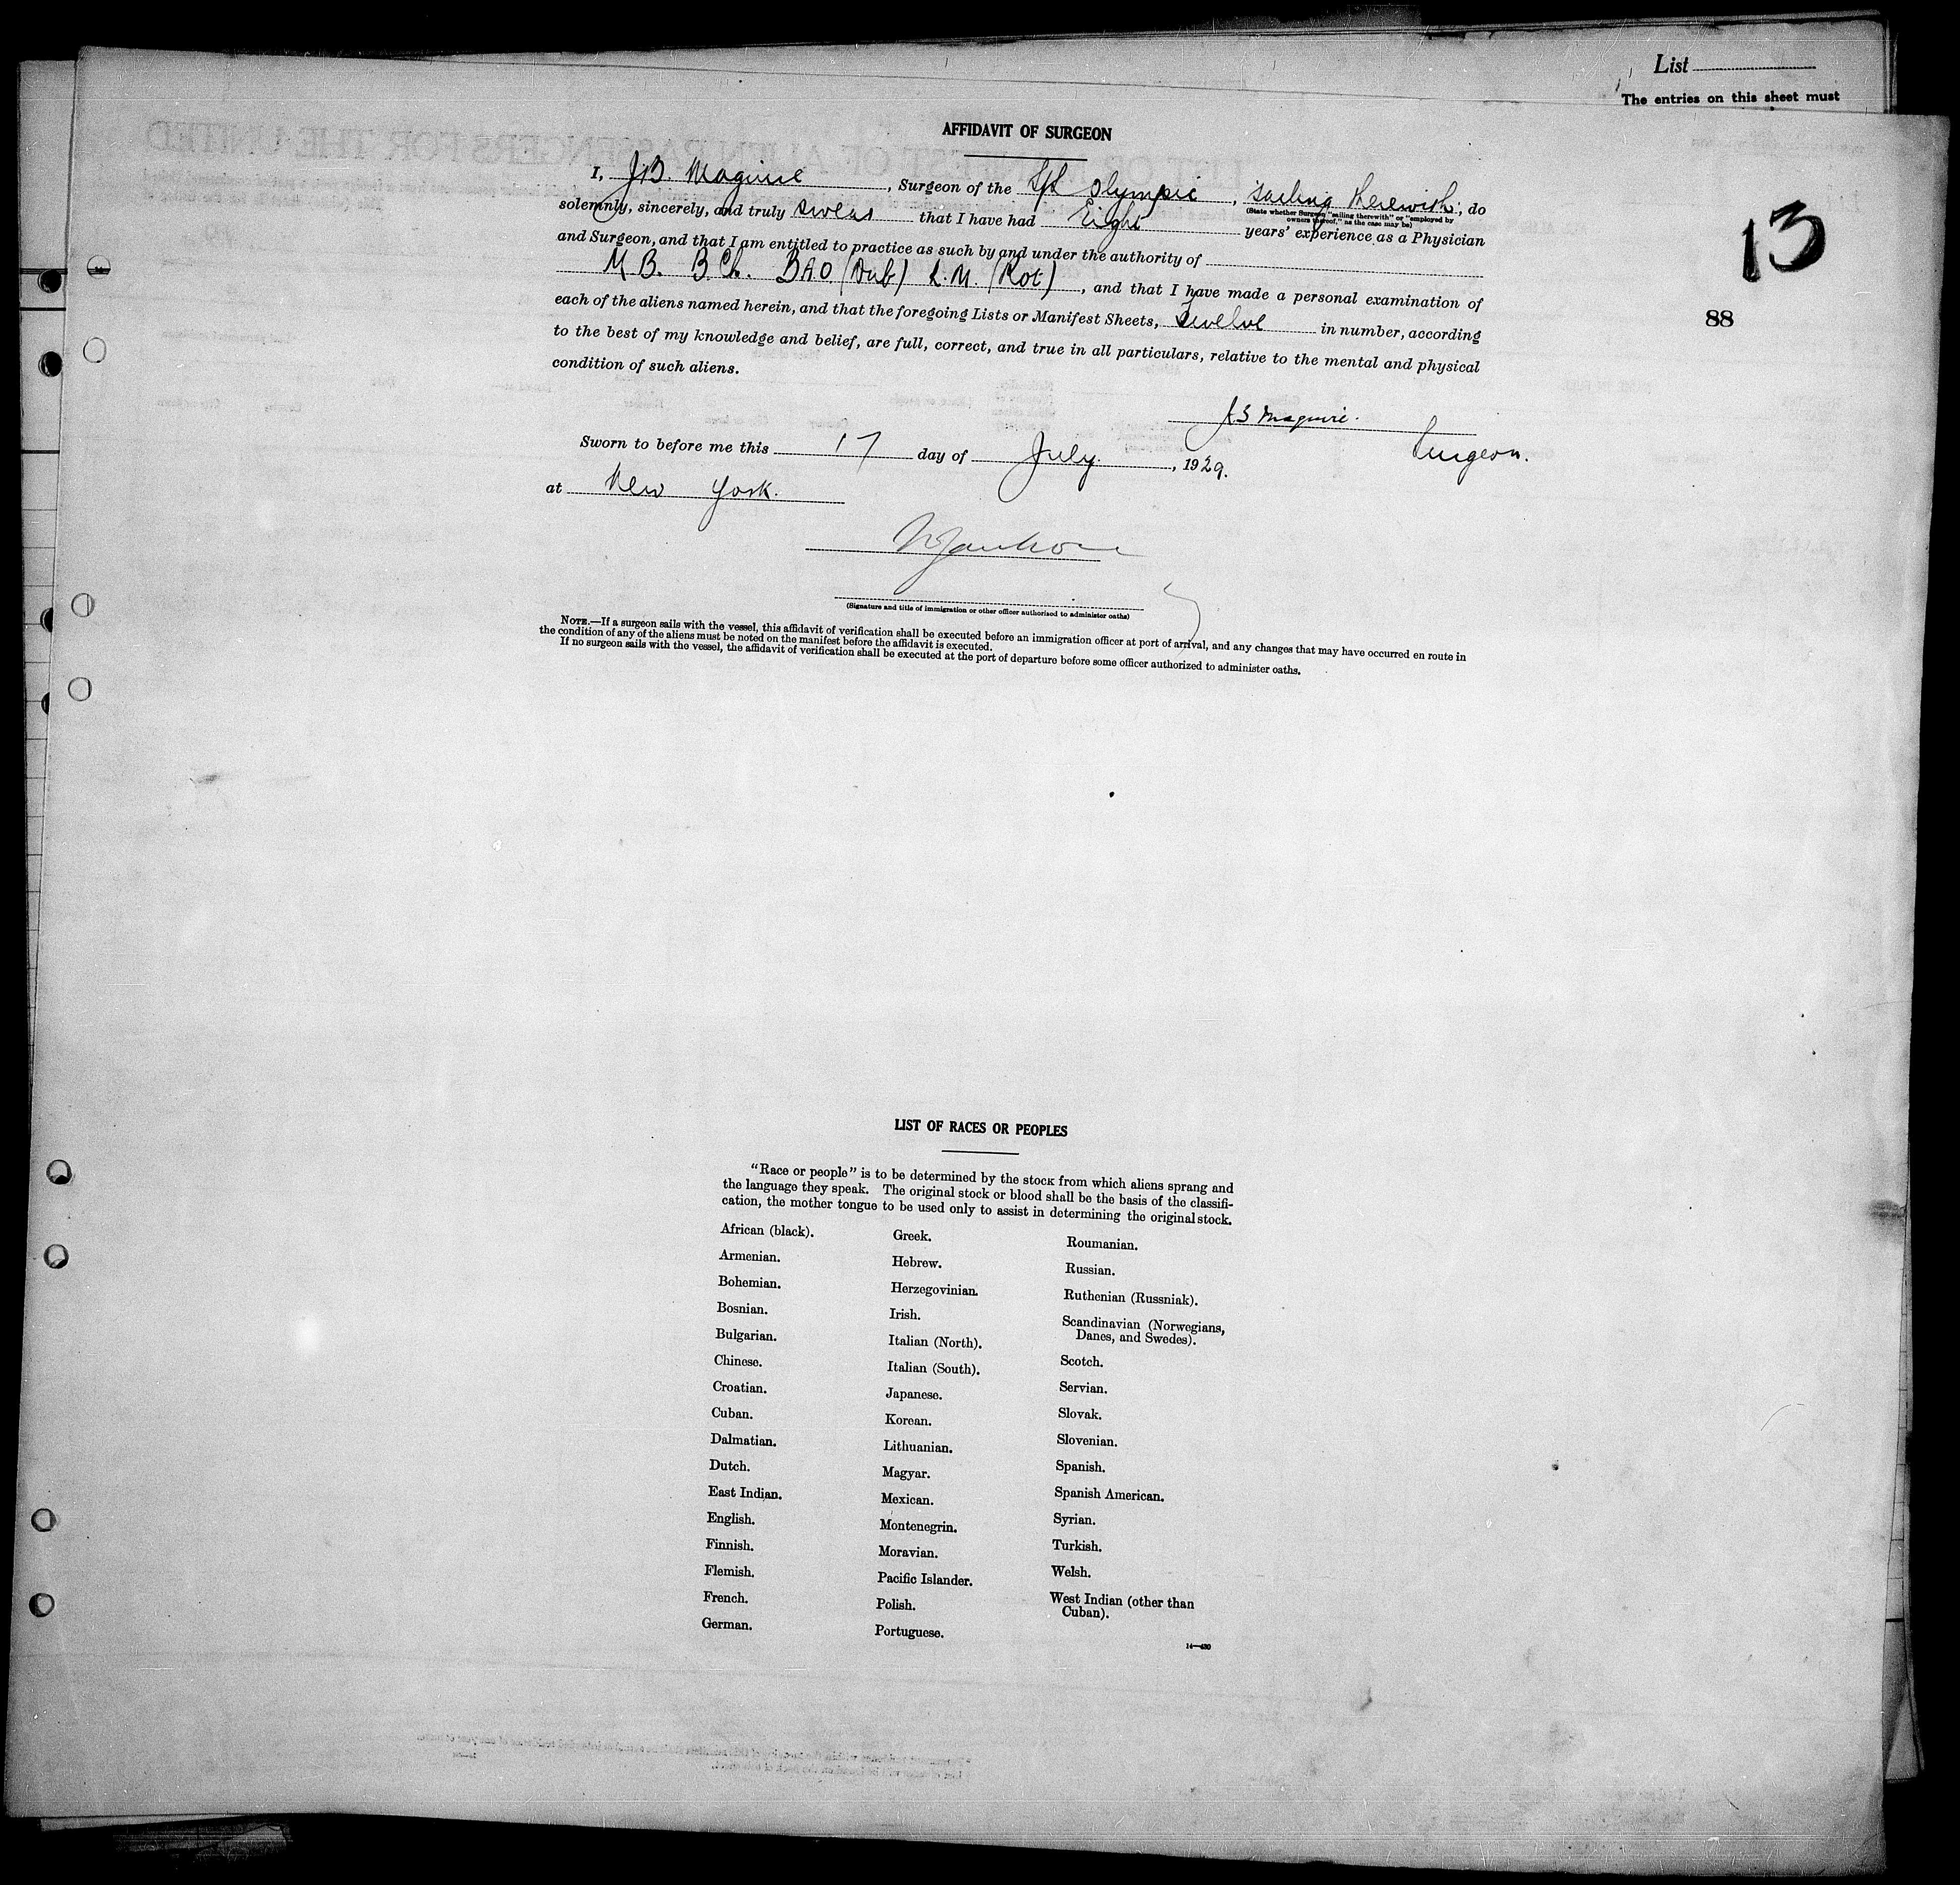 List
The entries on this sheet must
AFFIDAVIT OF SURGEON
13
88
I, J.B. Maguire, Surgeon of the S/S Olympic, sailing therewith; do
(State whether Surgeon "sailing therewith" or "employed by
owners thereof," as the case may be)
solemnly, sincerely, and truly swear that I have had Eight years' experience as a Physician
and Surgeon, and that I am entitled to practice as such by and under the authority of
M.B. B.Ch. B.A.O. (Dub) L.M. (Rot), and that I have made a personal examination of
each of the aliens named herein, and that the foregoing Lists or Manifest Sheets, Twelve in number, according
to the best of my knowledge and belief, are full, correct, and true in all particulars, relative to the mental and physical
condition of such aliens.
J B Maguire.
Surgeon.
Sworn to before me this 17 day of July, 1929.
at New York.
(Signature and title of immigration or other officer authorized to administer oaths)
NOTE.—If a surgeon sails with the vessel, this affidavit of verification shall be executed before an immigration officer at port of arrival, and any changes that may have occurred en route in
the condition of any of the aliens must be noted on the manifest before the affidavit is executed.
If no surgeon sails with the vessel, the affidavit of verification shall be executed at the port of departure before some officer authorized to administer oaths.
LIST OF RACES OR PEOPLES
"Race or people" is to be determined by the stock from which aliens sprang and
the language they speak. The original stock or blood shall be the basis of the classifi-
cation, the mother tongue to be used only to assist in determining the original stock.
African (black).
Armenian.
Bohemian.
Bosnian.
Bulgarian.
Chinese.
Croatian.
Cuban.
Dalmatian.
Dutch.
East Indian.
English.
Finnish.
Flemish.
French.
German.
Greek.
Hebrew.
Herzegovinian.
Irish.
Italian (North).
Italian (South).
Japanese.
Korean.
Lithuanian.
Magyar.
Mexican.
Montenegrin.
Moravian.
Pacific Islander.
Polish.
Portuguese.
Roumanian.
Russian.
Ruthenian (Russniak).
Scandinavian (Norwegians,
Danes, and Swedes).
Scotch.
Servian.
Slovak.
Slovenian.
Spanish.
Spanish American.
Syrian.
Turkish.
Welsh.
West Indian (other than
Cuban).
14—430